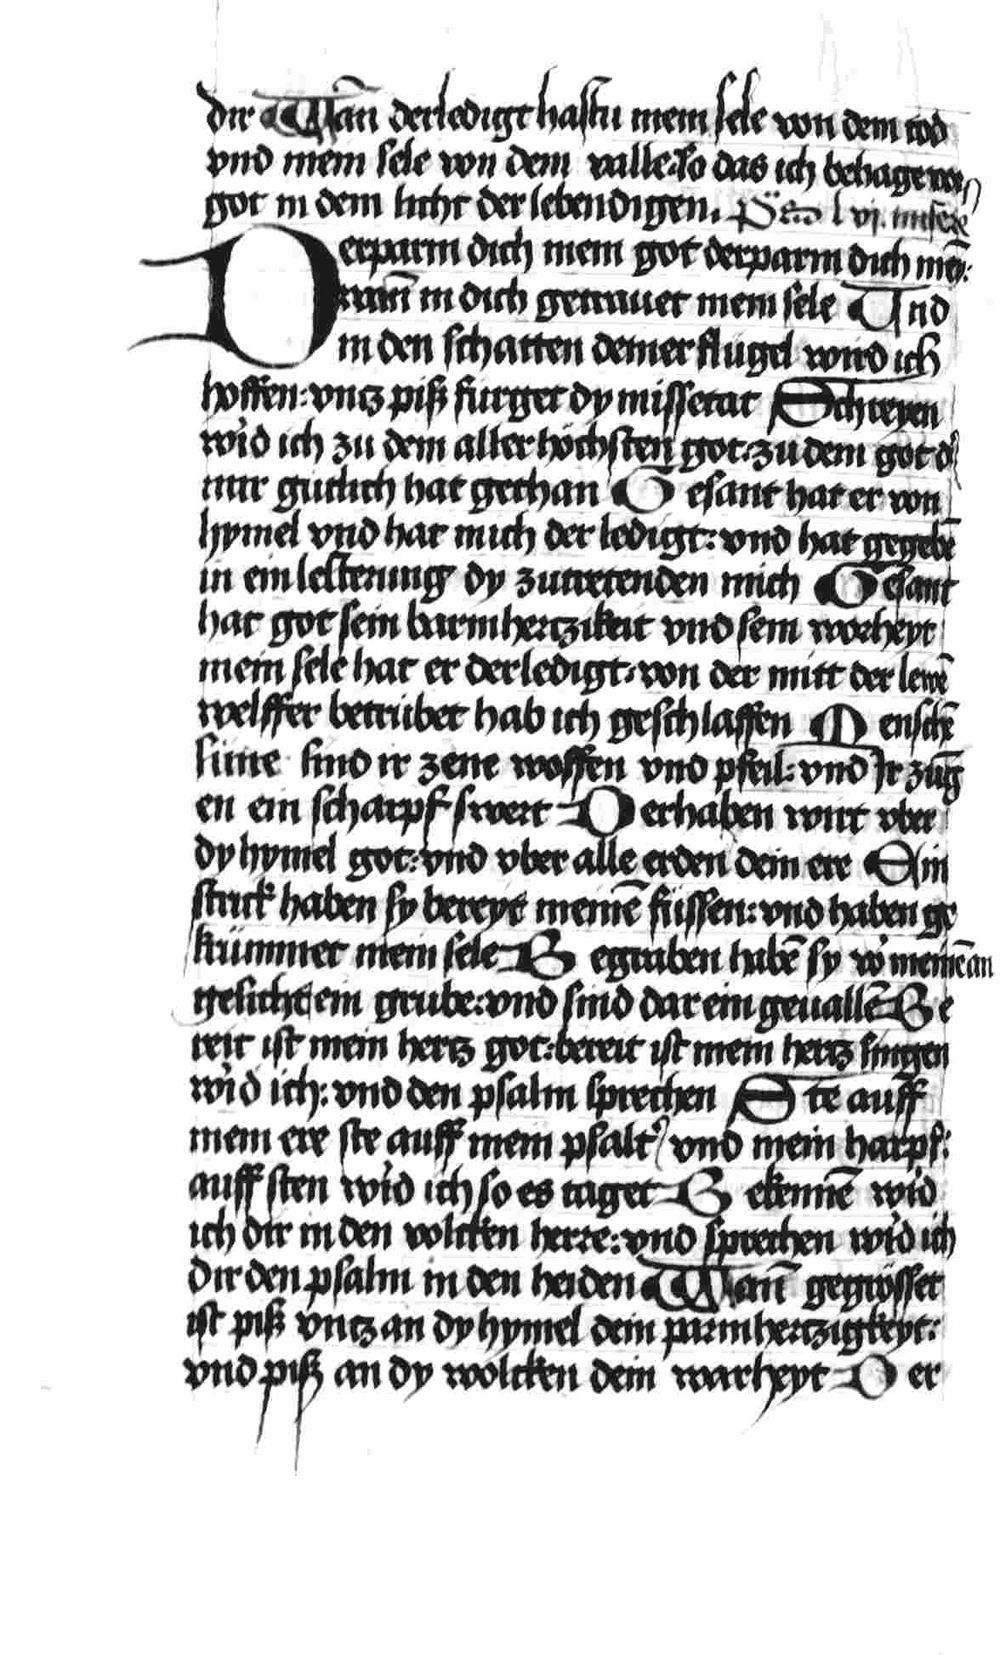 dir Wan̄ derledigt hastu mein sele von dem tod
vnd mein sele von dem valle: So das ich behage vor
got in dem licht der lebendigen. lvj. misere
Derparm dich mein got derparm dich mei̅:
wan̄ in dich getrauet mein sele Vnd
in den schatten deiner flügel wird ich
hoffen: vntz piß furget dy missetat Schreyen
wi̍d ich zu dem aller höchsten got: zu dem got d̍
mir gütlich hat gethan Gesant hat er von
hymel vnd hat mich der ledigt: vnd hat gegebē
in ein lesterung dy zutretenden mich Gesant
hat got sein barmhertzikeit vnd sein worheyt
mein sele hat er derledigt: von der mitt der lewē
welffer betrübet hab ich geschlaffen Menschē
süne sind ir zene woffen vnd pfeil: vnd Ir zūg
en ein scharpf swert Derhaben wirt vber
dy hymel got: vnd vber alle erden dein ere Ein
strick haben sy bereyt meinē füssen: vnd haben ge
krümmet mein sele Begraben habē sy vo̍ meinē an
gesicht ein grube: vnd sind dar ein geuallē Be
reit ist mein hertz got: bereit ist mein hertz singen
wi̍d ich: vnd den psalm sprechen Ste auff
mein ere ste auff mein psalt̍ vnd mein harpf:
auff sten wi̍d ich so es taget Bekennē wi̍d
ich dir in den volcken herre: vnd sprechen wi̍d ich
dir den psalm in den heiden Wan̄ gegrösset
ist piß vntz an dy hymel dein parmhertzigkeyt:
vnd piß an dy wolcken dein warheyt Der